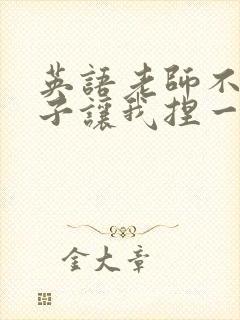 英語老師不
子讓我捏一
金大章